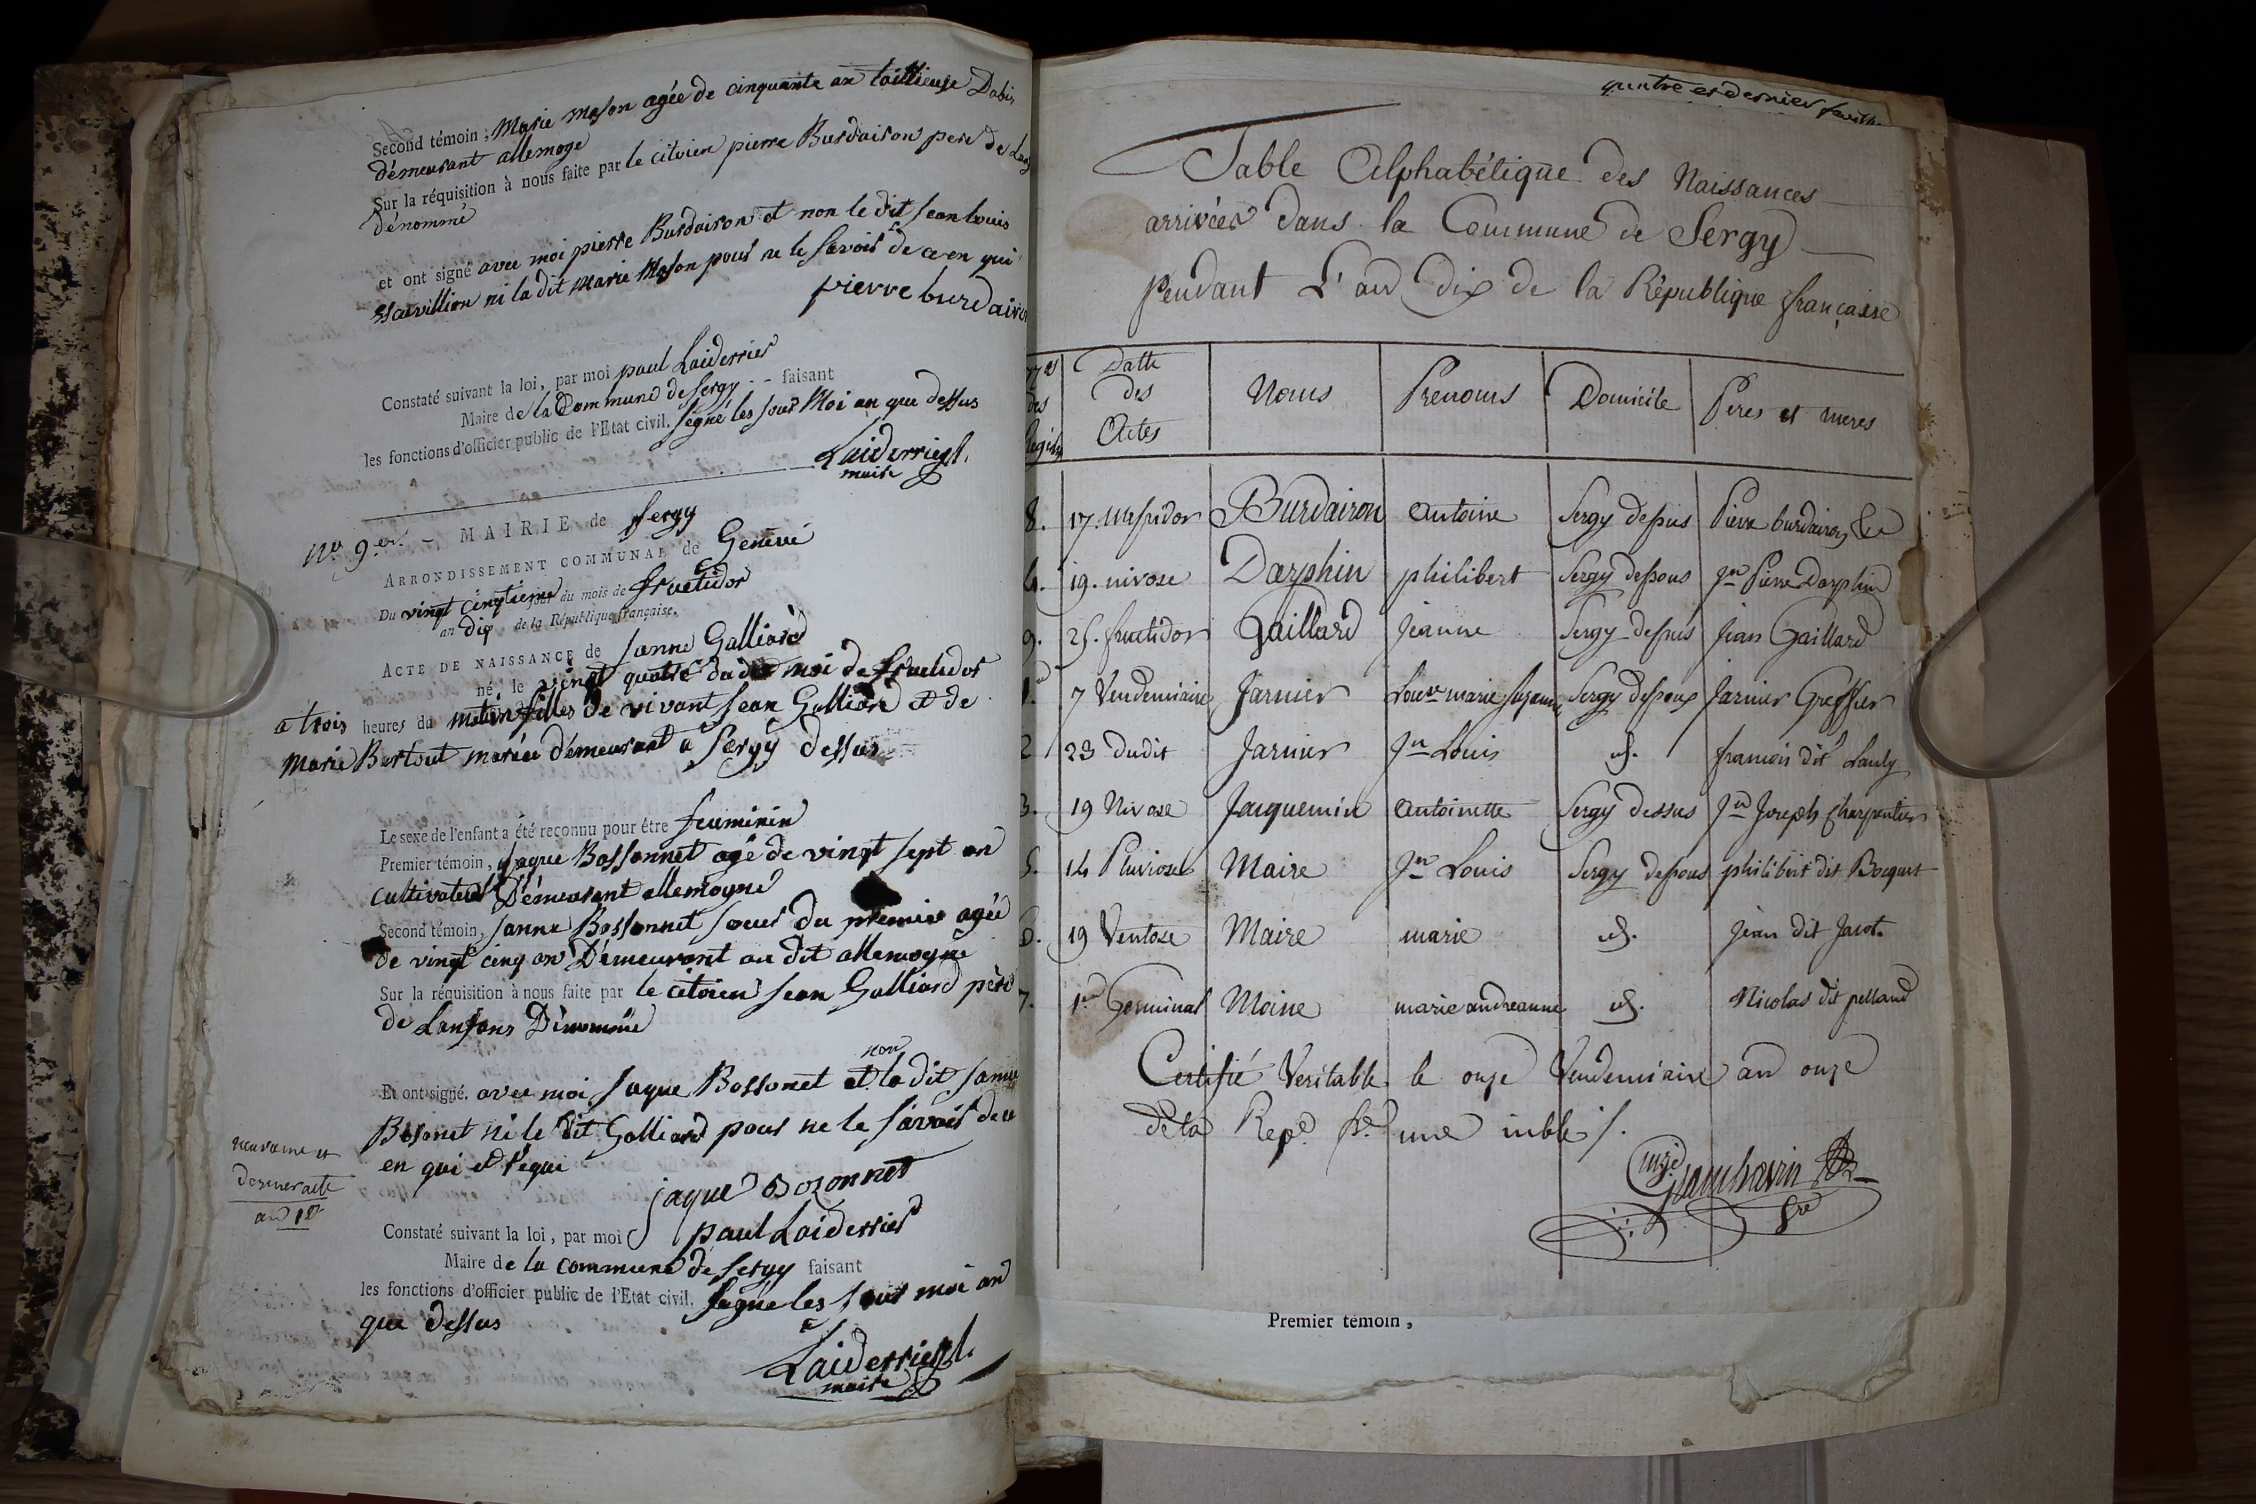 Second témoin, Marie Mason agée de cinquante an taillieuse Dabis
démeurant allemoge
Sur la réquisition à nous faite par le citoien pierre Burdairon pere de
dénommé
et ont signé avec moi pierre Burdairon et non le dit Jean louis
ni la dit Marie Mason pour ne le savoir de ce en qui
pierre burdairon
Constaté suivant la loi, par moi paul Laiderrier
Maire de la Commune de Sergy faisant
les fonctions d'officier public de l'Etat civil. Segné les jour Moi an que dessus
Laiderrier
maire
No 9er. - MAIRIE de Sergy
ARRONDISSEMENT COMMUNAL de Genève
Du vingt cinqtieme jour du mois de fructidor
an dix de la République française.
ACTE DE NAISSANCE de Janne Galliard
né le vingt quatre du dit moi de fructidor
a trois heures du matin filles de vivant Jean Galliard et de
Marie Bertout mariée démeurant a Sergy dessus
Le sexe de l'enfant a été reconnu pour être feuminin
Premier témoin, Jaque Bossonnet agé de vingt sept an
cultivateur Démeurant allemogne
Second témoin, Janne Bossonnet soeur du premier agée
de vingt cinq an Démeurant au dit allemogne
Sur la réquisition à nous faite par le citoien Jean Galliard père
de Lanfans Dénommée
non
Et ont signé. avec moi Jaque Bossonet et la dit Janne
Bosonet ni le dit Galliard pour ne le savoir de ce
en qui et requi
neuvaine et
dernier acte
an 10
jaque Bozonnet
Constaté suivant la loi, par moi paul Laiderrier
Maire de la commune de Sergy faisant
les fonctions d'officier public de l'Etat civil. Segné les jour moi and
que dessus
Laiderrier
maire
quatre et dernier feuille
Table Alphabétique des Naissances
arrivées dans la Commune de Sergy
Pendant L'an dix de la République française
Nos des Regist. Datte des Actes Noms Prenoms Domicile Peres et meres
8. 17. Messidor Burdairon Antoine Sergy dessus Pierre burdairon
4. 19. nivose Darphin philibert Sergy dessous Jn Pierre Darphin
9. 25. fructidor Gaillard Jeanne Sergy dessus Jean Gaillard
1. 7 Vendemiaire Jarnier Louise marie Susanne Sergy dessous Jarnier Greffier
2 23 dudit Jarnier Jn Louis id. francois dit Lauly
3. 19 Nivose Jacquemin Antoinette Sergy dessus Jn Joseph Charpentier
5. 14 Pluviose Maire Jn Louis Sergy dessous philibert dit Bocquet
6. 19 Ventose Maire marie id. Jean dit Jacot
7. 1er Germinal Moine marie andreanne id. Nicolas dit pelland
Certifié Veritable le onze Vendemiaire an onze
de la Repe. fse. une indble /.
Premier témoin,